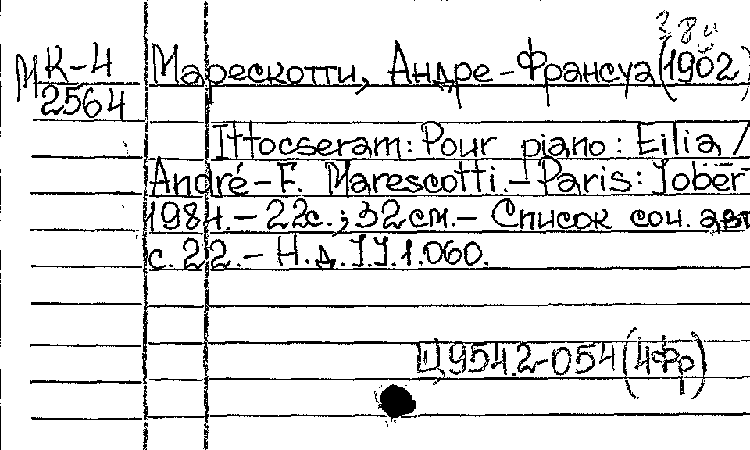 МК-4 Марескотти, Андре-Франсуа (1902)
2564
Ittocseram: Pour piano: Eilia /
André-F. Marescotti.- Paris: Jober
1984.- 22с.; 32см.- Список соч. авт
с. 22.- Н.д. J.J.1.060.
Ц9542-054 (4Фр)